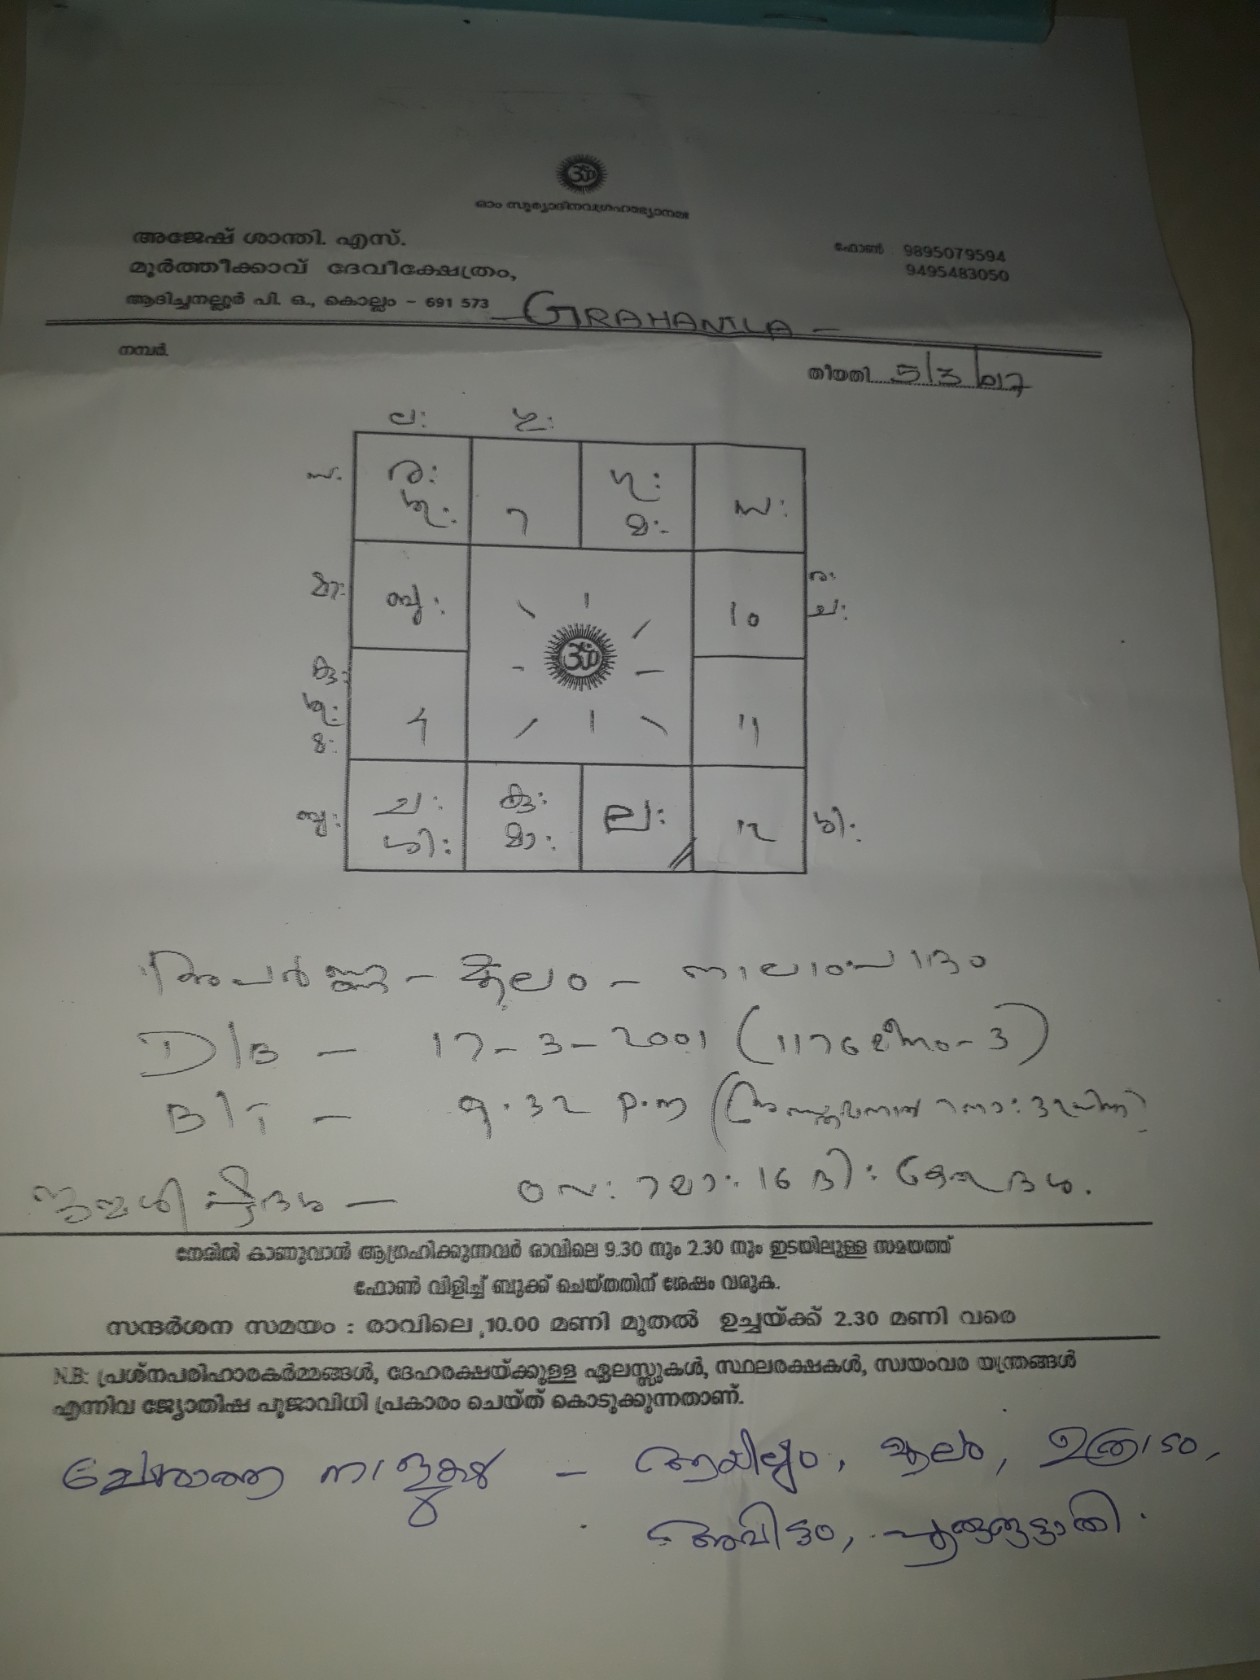 അജേഷ് ശാന്തി. എസ്.
മൂർത്തീക്കാവ് ദേവീക്ഷേത്രം,
ആദിച്ചനല്ലൂർ പി. ഒ., കൊല്ലം - 691 573
ഫോൺ : 9895079594
9495483050
- GRAHANILA -
നമ്പർ.
തീയതി 5/3/2017
ല:
സ.
ര:
ശു:
7
ഗു:
മ:
സ:
മാ:
ബു:
10
ര:
ച:
കു:
ശു:
ഗു:
4
11
ബു:
ച:
ശി:
കു:
മാ:
ല:
12
ശി:
അപർണ്ണ - മൂലം - നാലാംപാദം
D/B - 17-3-2001 (1176 മീനം-3)
B/T - 9.32 P.M
- 0 സ: 7 മാ: 16 ദി:
നേരിൽ കാണുവാൻ ആഗ്രഹിക്കുന്നവർ രാവിലെ 9.30 നും 2.30 നും ഇടയിലുള്ള സമയത്ത്
ഫോൺ വിളിച്ച് ബുക്ക് ചെയ്തതിന് ശേഷം വരുക.
സന്ദർശന സമയം : രാവിലെ 10.00 മണി മുതൽ ഉച്ചയ്ക്ക് 2.30 മണി വരെ
N.B: പ്രശ്നപരിഹാരകർമ്മങ്ങൾ, ദേഹരക്ഷയ്ക്കുള്ള ഏലസ്സുകൾ, സ്ഥലരക്ഷകൾ, സ്വയംവര യന്ത്രങ്ങൾ
എന്നിവ ജ്യോതിഷ പൂജാവിധി പ്രകാരം ചെയ്ത് കൊടുക്കുന്നതാണ്.
ചേരാത്ത നാളുകൾ - ആയില്യം, മൂലം, ഉത്രാടം,
അവിട്ടം, പൂരുരുട്ടാതി.